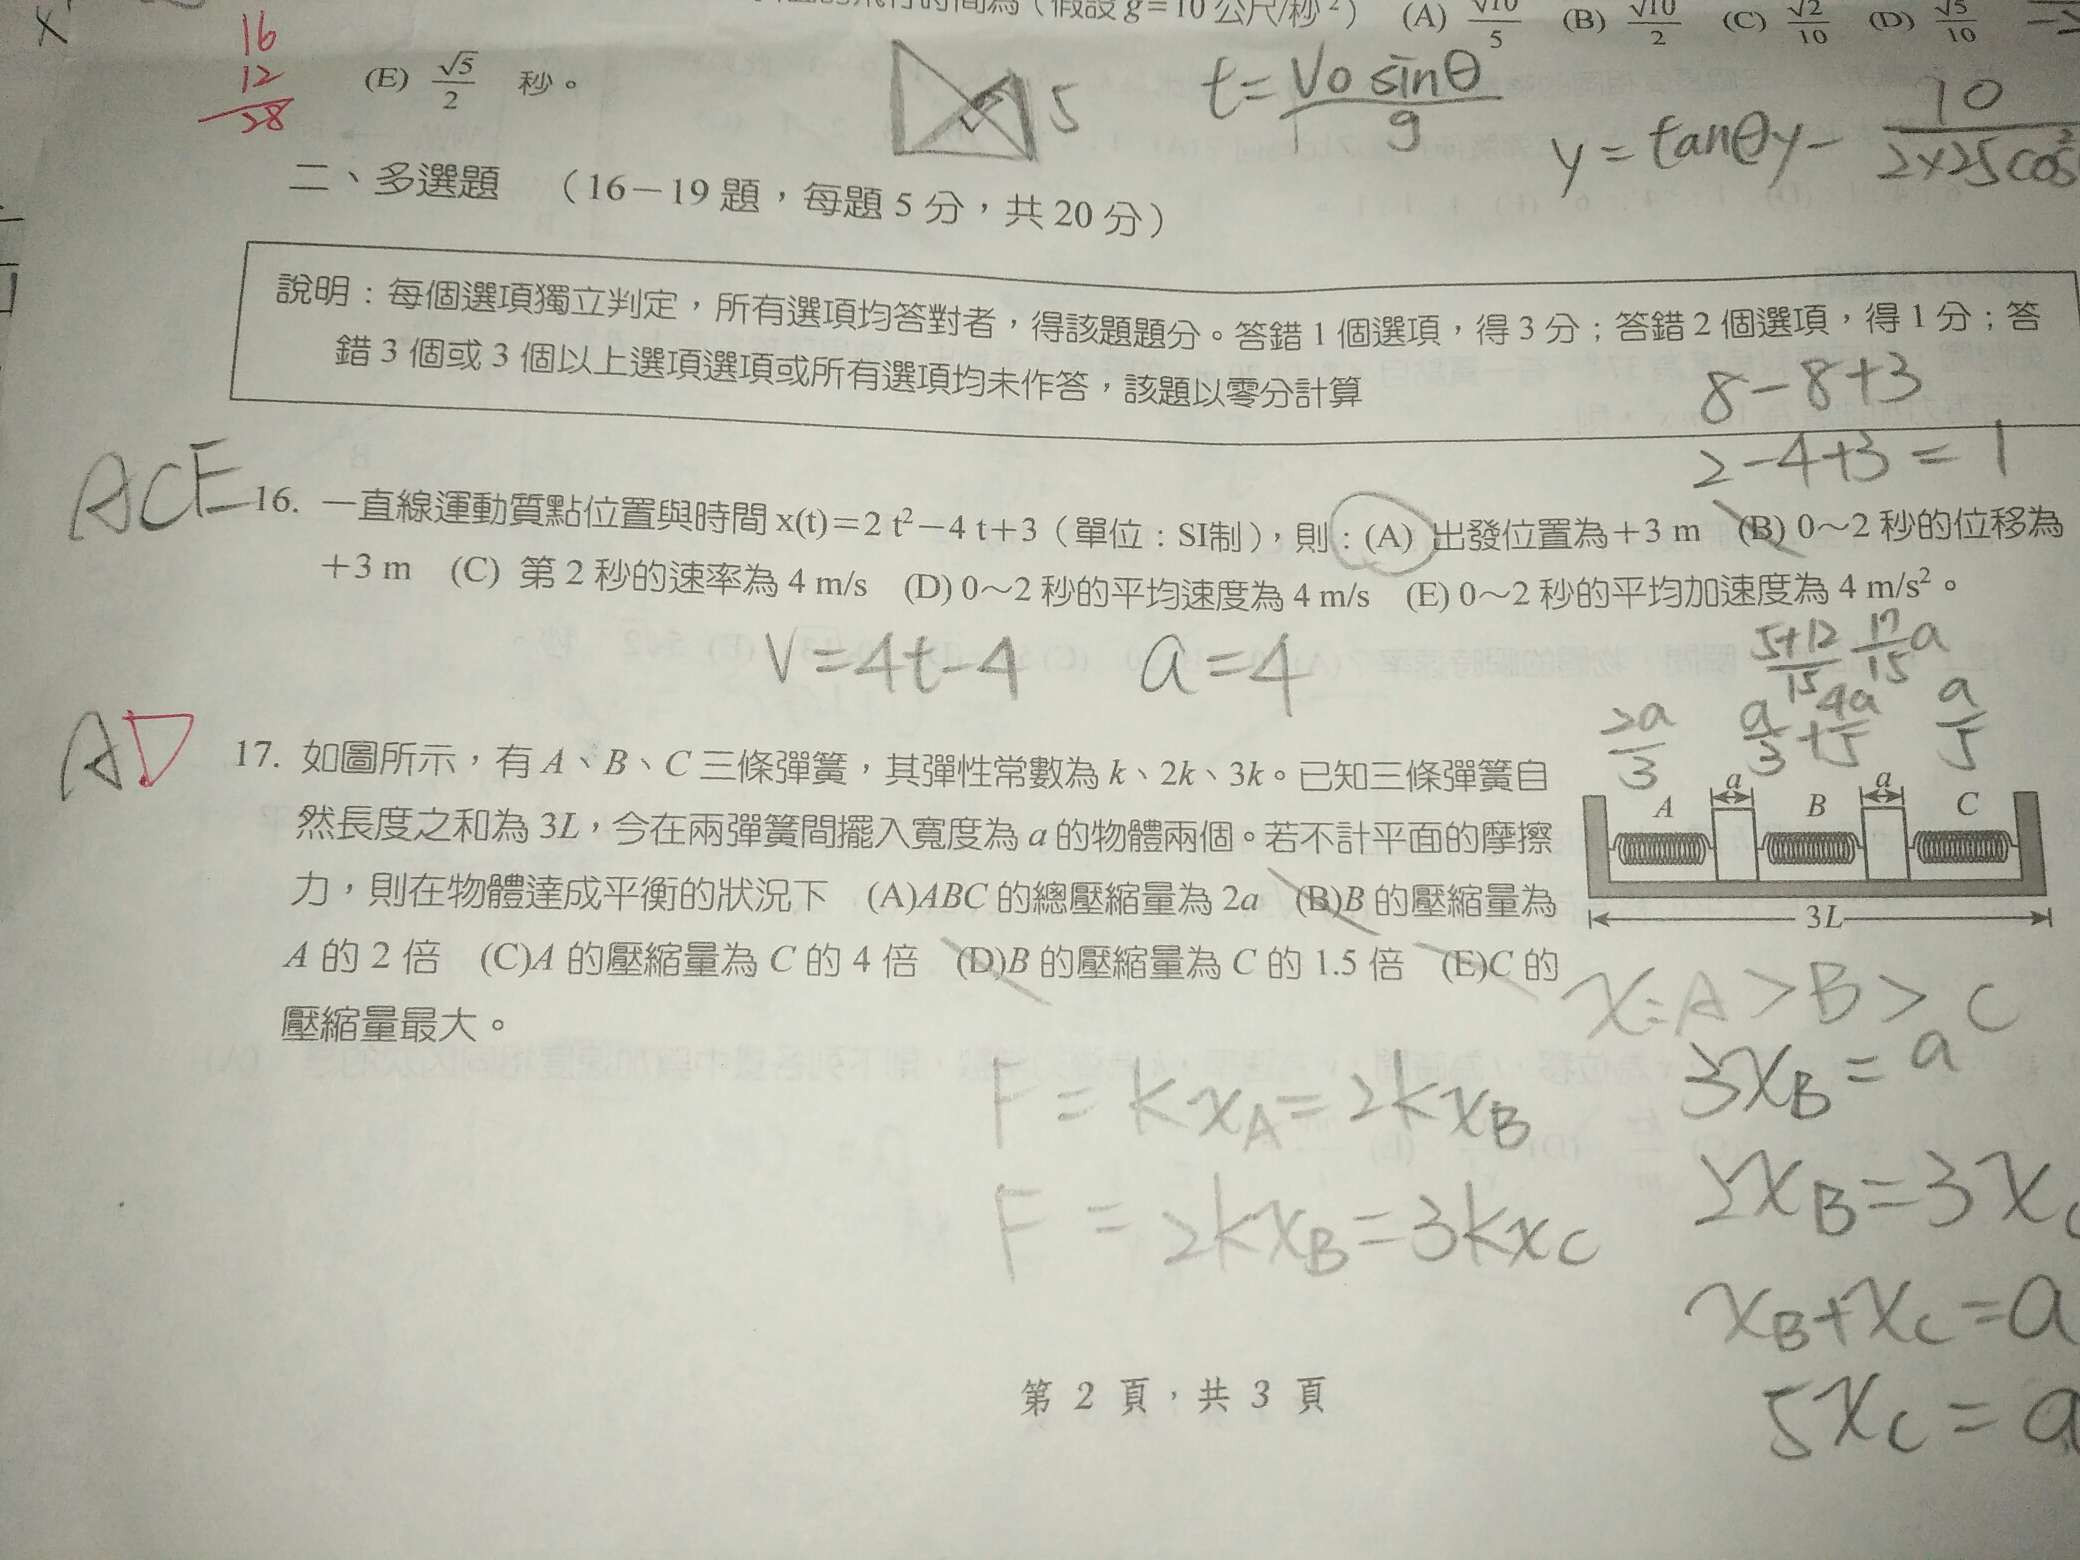 (假設 g=10 公尺/秒²) (A) √10/5 (B) √10/2 (C) √2/10 (D) √5/10
16
12
28
(E) √5/2 秒。
5
t=V0 sinθ/g
y=tanθy-10/2×25cos²
二、多選題 (16-19題,每題5分,共20分)
說明:每個選項獨立判定,所有選項均答對者,得該題題分。答錯1個選項,得3分;答錯2個選項,得1分;答
錯3個或3個以上選項選項或所有選項均未作答,該題以零分計算
8-8+3
2-4+3=1
ACE
16. 一直線運動質點位置與時間 x(t)=2 t²-4 t+3 (單位:SI制),則:(A) 出發位置為+3 m (B) 0~2 秒的位移為
+3 m (C) 第2秒的速率為 4 m/s (D) 0~2 秒的平均速度為 4 m/s (E) 0~2 秒的平均加速度為 4 m/s²。
V=4t-4 a=4
5+12/15 17/15a
2a/3 a/3+4a/5 a/5
AD
17. 如圖所示,有 A、B、C 三條彈簧,其彈性常數為 k、2k、3k。已知三條彈簧自
然長度之和為 3L,今在兩彈簧間擺入寬度為 a 的物體兩個。若不計平面的摩擦
力,則在物體達成平衡的狀況下 (A)ABC 的總壓縮量為 2a (B)B 的壓縮量為
A 的 2 倍 (C)A 的壓縮量為 C 的 4 倍 (D)B 的壓縮量為 C 的 1.5 倍 (E)C 的
壓縮量最大。
A a B a C
3L
x:A>B>C
3xB=a
F=kxA=2kxB
2xB=3xC
F=2kxB=3kxC
xB+xC=a
5xC=a
第 2 頁,共 3 頁